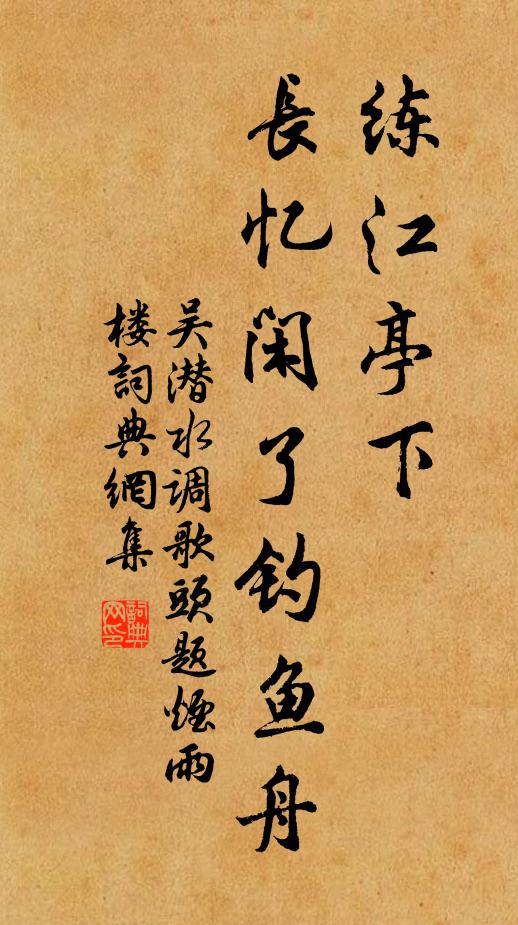 练江亭下
長忆闲了钓鱼舟
吴潜水调歌頭题煙雨
楼詞典網集
詞典网印